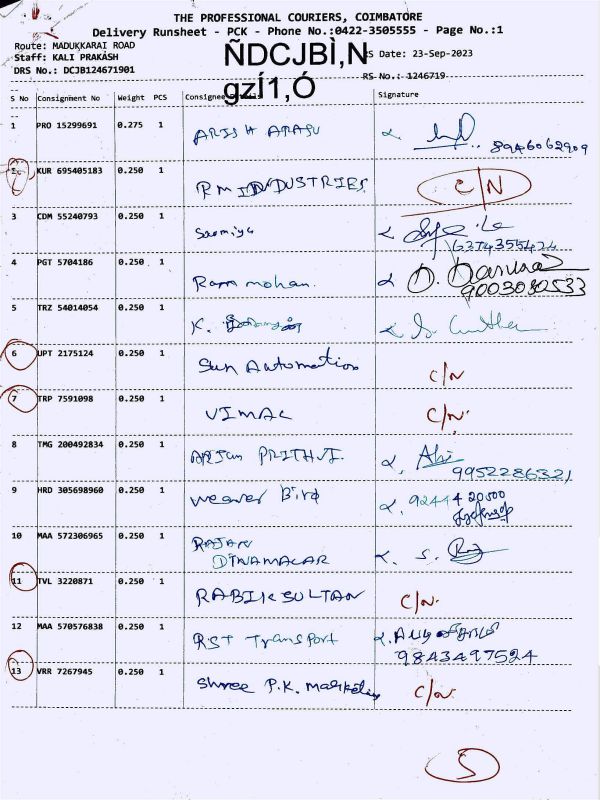 THE PROFESSIONAL COURIERS, COIMBATORE
Delivery Runsheet - PCK - Phone No.:0422-3505555 - Page No.:1
Route: MADUKKARAI ROAD
Staff: KALI PRAKASH
DRS No.: DCJB124671901
ÑDCJBÌ,N
gzÍ1,Ó
RS Date: 23-Sep-2023
RS-No.: 1246719
S No Consignment No Weight PCS Consignee Details Signature
1 PRO 15299691 0.275 1 ARISH ARASU
8946062909
2 KUR 695405183 0.250 1 RM INDUSTRIES C/N
3 CDM 55240793 0.250 1 Sowmiya
6374355424
4 PGT 5704186 0.250 1 Ram mohan.
9003030533
5 TRZ 54014054 0.250 1 K.
6 UPT 2175124 0.250 1 Sun Automation C/N
7 TRP 7591098 0.250 1 VIMAL C/N.
8 TMG 200492834 0.250 1 ARJUN PRITHVI.
9952286321
9 HRD 305698960 0.250 1 weaver Bird 9244420500
10 MAA 572306965 0.250 1 RAJAN
DINAMALAR S.
11 TVL 3220871 0.250 1 RABIK SULTAN C/N.
12 MAA 570576838 0.250 1 RST Transport
9843497524
13 VRR 7267945 0.250 1 Shree P.K. Marketing C/N.
5